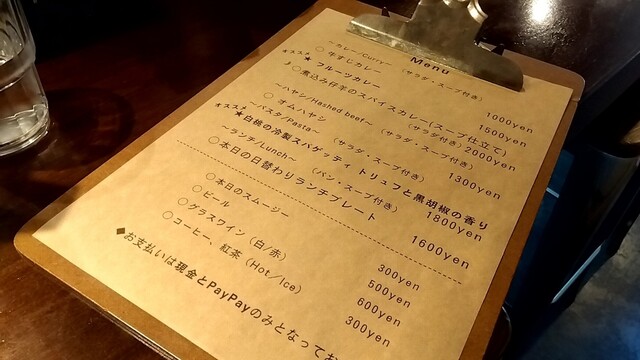 Menu
~カレー/Curry~ (サラダ・スープ付き)
○ 牛すじカレー 1000yen
オススメ ★ フルーツカレー 1500yen
○煮込み仔羊のスパイスカレー(スープ仕立て) (サラダ付き) 2000yen
~ハヤシ/Hashed beef~ (サラダ・スープ付き)
○ オムハヤシ 1300yen
~パスタ/Pasta~ (サラダ・スープ付き)
オススメ ★白桃の冷製スパゲッティ トリュフと黒胡椒の香り 1800yen
~ランチ/Lunch~ (パン・スープ付き)
○本日の日替わりランチプレート 1600yen
○ 本日のスムージー 300yen
○ ビール 500yen
○ グラスワイン (白/赤) 600yen
○ コーヒー、紅茶 (Hot/Ice) 300yen
◆お支払いは現金とPayPayのみとなってお